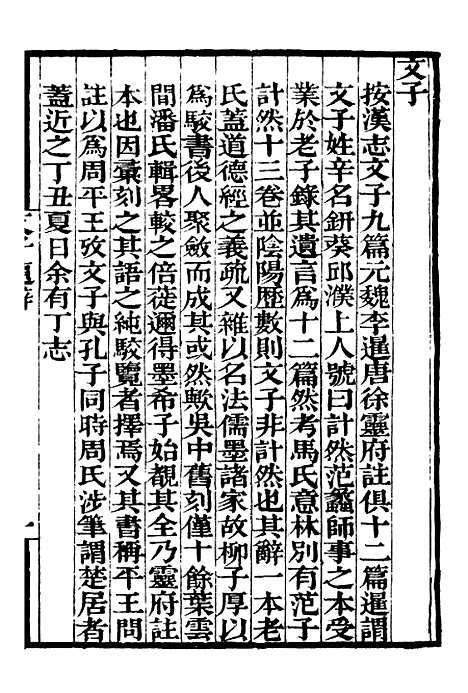 文子
按漢志文子九篇元魏李暹唐徐靈府註俱十二篇暹謂
文子姓辛名鈃葵邱濮上人號曰計然范蠡師事之本受
業於老子錄其遺言爲十二篇然考馬氏意林別有范子
計然十三卷並陰陽歷數則文子非計然也其辭一本老
氏蓋道德經之義疏又雜以名法儒墨諸家故柳子厚以
爲駁書後人聚斂而成其或然歟吳中舊刻僅十餘葉雲
間潘氏輯畧較之倍蓰邇得墨希子始覩其全乃靈府註
本也因彚刻之其語之純駁覽者擇焉又其書稱平王問
註以爲周平王攷文子與孔子同時周氏涉筆謂楚居者
蓋近之丁丑夏日余有丁志